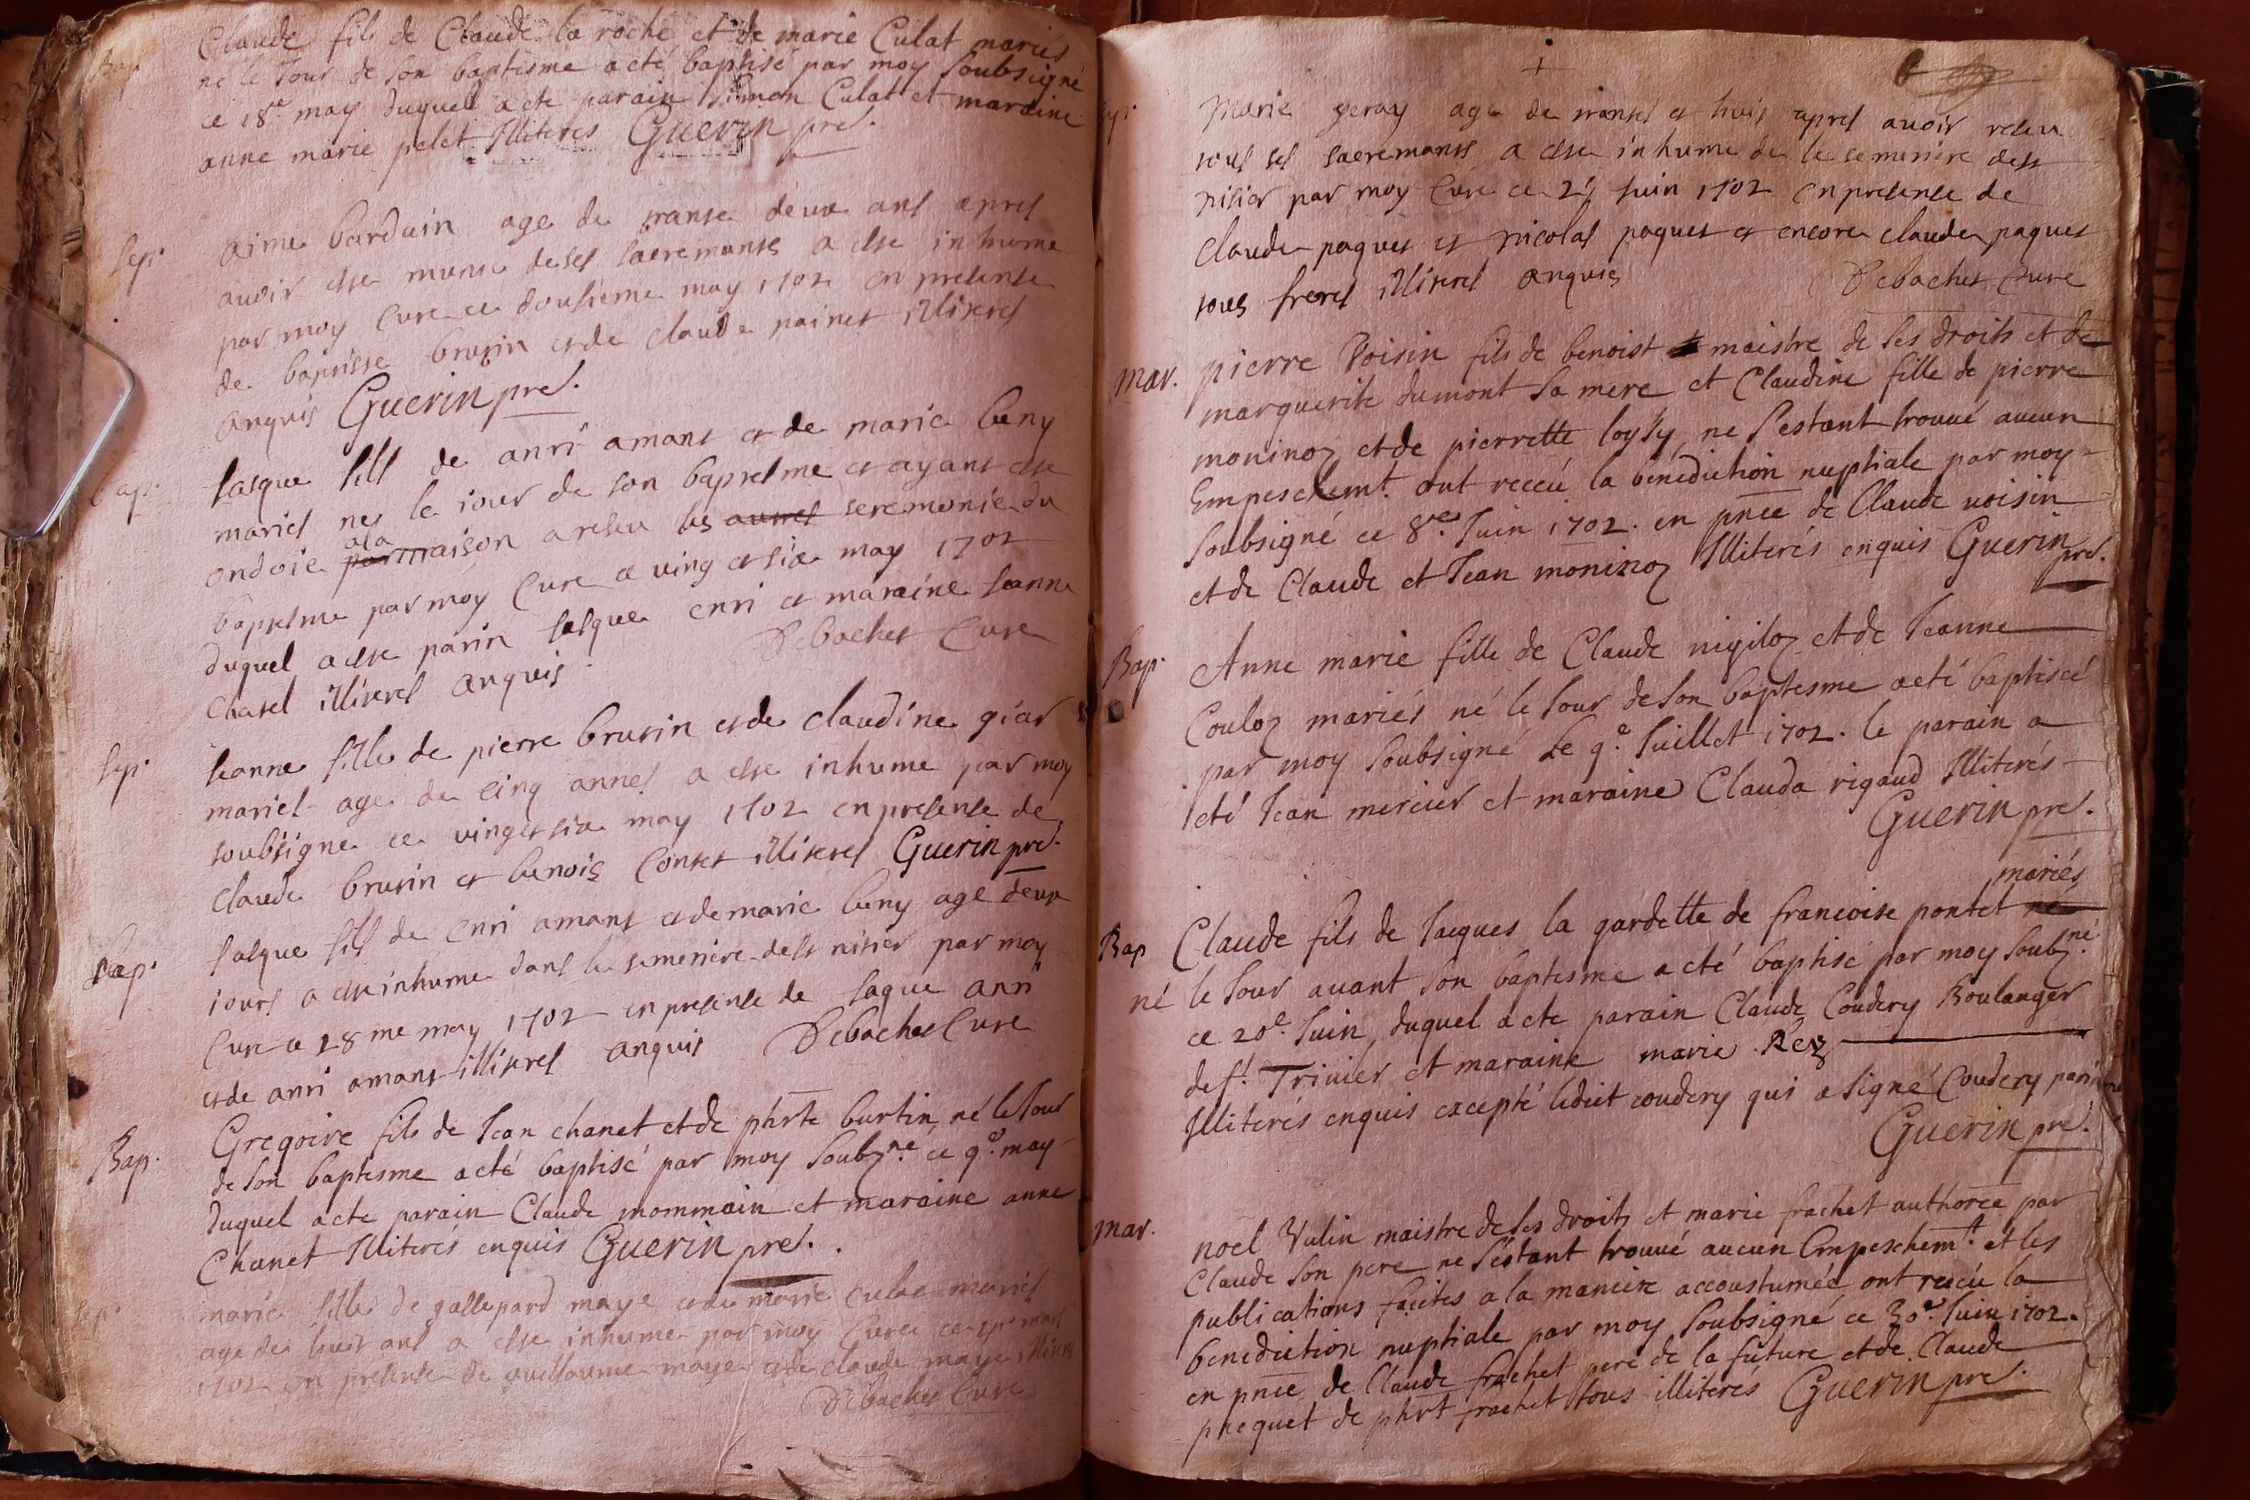 Bap. Claude fils de Claude la roche et de marie Culat mariés
né le Jour de son baptisme a eté baptisé par moy soubsigné
ce 18e may duquel a ete parain simon Culat et maraine
anne marie pelet Illiterés Guerin pre.
Sep. aime barduin age de trante deux ans apres
avoir este munie de ses sacremants a este inhume
par moy Cure ce dousieme may 1702 en presense
de baptiste brutin et de claude painet illiteres
anquis Guerin pre.
Bap. Jasque fils de anri amant et de marie beny
maries nes le iour de son baptesme et ayant este
ondoie par a la maison a reseu les autres seremonie du
baptesme par moy Cure ce ving et six may 1702
duquel a este parin Jasque enri et maraine Jeanne
chatel illiteres anquis Debachet Cure
Sep. Jeanne fille de pierre brutin et de claudine giar
maries age de cinq annes a este inhume par moy
soubsigne ce vingt et six may 1702 en presense de
claude brutin et benois Contet illiteres Guerin pre.
Sep. Jasque fils de enri amant et de marie beny age deux
iours a este inhume dans le semetiere de st nisier par moy
Cure ce 28 me may 1702 en presense de Jaque anri
et de anri amant illiteres anquis Debachet Cure
Bap. Gregoire fils de Jean chanet et de phrte burtin né le Jour
de son baptesme a eté baptisé par moy soubzne ce 9e may
duquel a ete parain Claude mommain et maraine anne
Chanet Illiterés enquis Guerin pre.
Sep. marie fille de gallepard maye et de marie culat maries
age de huit ans a este inhume par moy Cure ce
1702 en presense de guillaume maye et de claude maye illiteres
Debachet Cure
Sep. Marie geray age de trante et huit apres avoir reseu
tous ses sacremants a este inhume de le semetiere de st
nisier par moy Cure ce 21 Juin 1702 en presense de
Claude paquet et nicolas paquet et encore claude paquet
tous freres illiteres anquis Debachet Cure
Mar. pierre Voisin fils de benoist maistre de ses droits et de
marguerite dumont sa mere et Claudine fille de pierre
moninoz et de pierrette loysy, ne s'estant trouué aucun
Empeschemt. ont receü la benediction nuptiale par moy
soubsigné ce 8e. Juin 1702. en pnce de Claude uoisin
et de Claude et Jean moninoz Illiterés enquis Guerin pre.
Bap. Anne marie fille de Claude nigiloz et de Jeanne
Couloz mariés né le Jour de son baptesme a eté baptiscé
par moy soubsigné Le 9e Juillet 1702. le parain a
eté Jean mercier et maraine Clauda rigaud Illiterés
Guerin pre.
mariés
Bap Claude fils de Jacques la gardette de francoise pontet ne
né le Jour auant son baptesme a eté baptisé par moy soubzné
ce 20e. Juin, duquel a ete parain Claude Coudery Boulanger
de st. Triuier et maraine marie Rey
Illiterés enquis excepté ledit coudery qui a signé Coudery parin
Guerin pre.
Mar. noël Vulin maistre de ses droits et marie frachet authorcée par
Claude son pere ne s'estant trouué aucun Empeschemt. et les
publications faites a la maniere accoustumée ont receü la
benediction nuptiale par moy soubsigné ce 30e. Juin 1702.
en pnce de Claude frachet pere de la future et de Claude
phequet de phrt frachet tous illiterés Guerin pre.